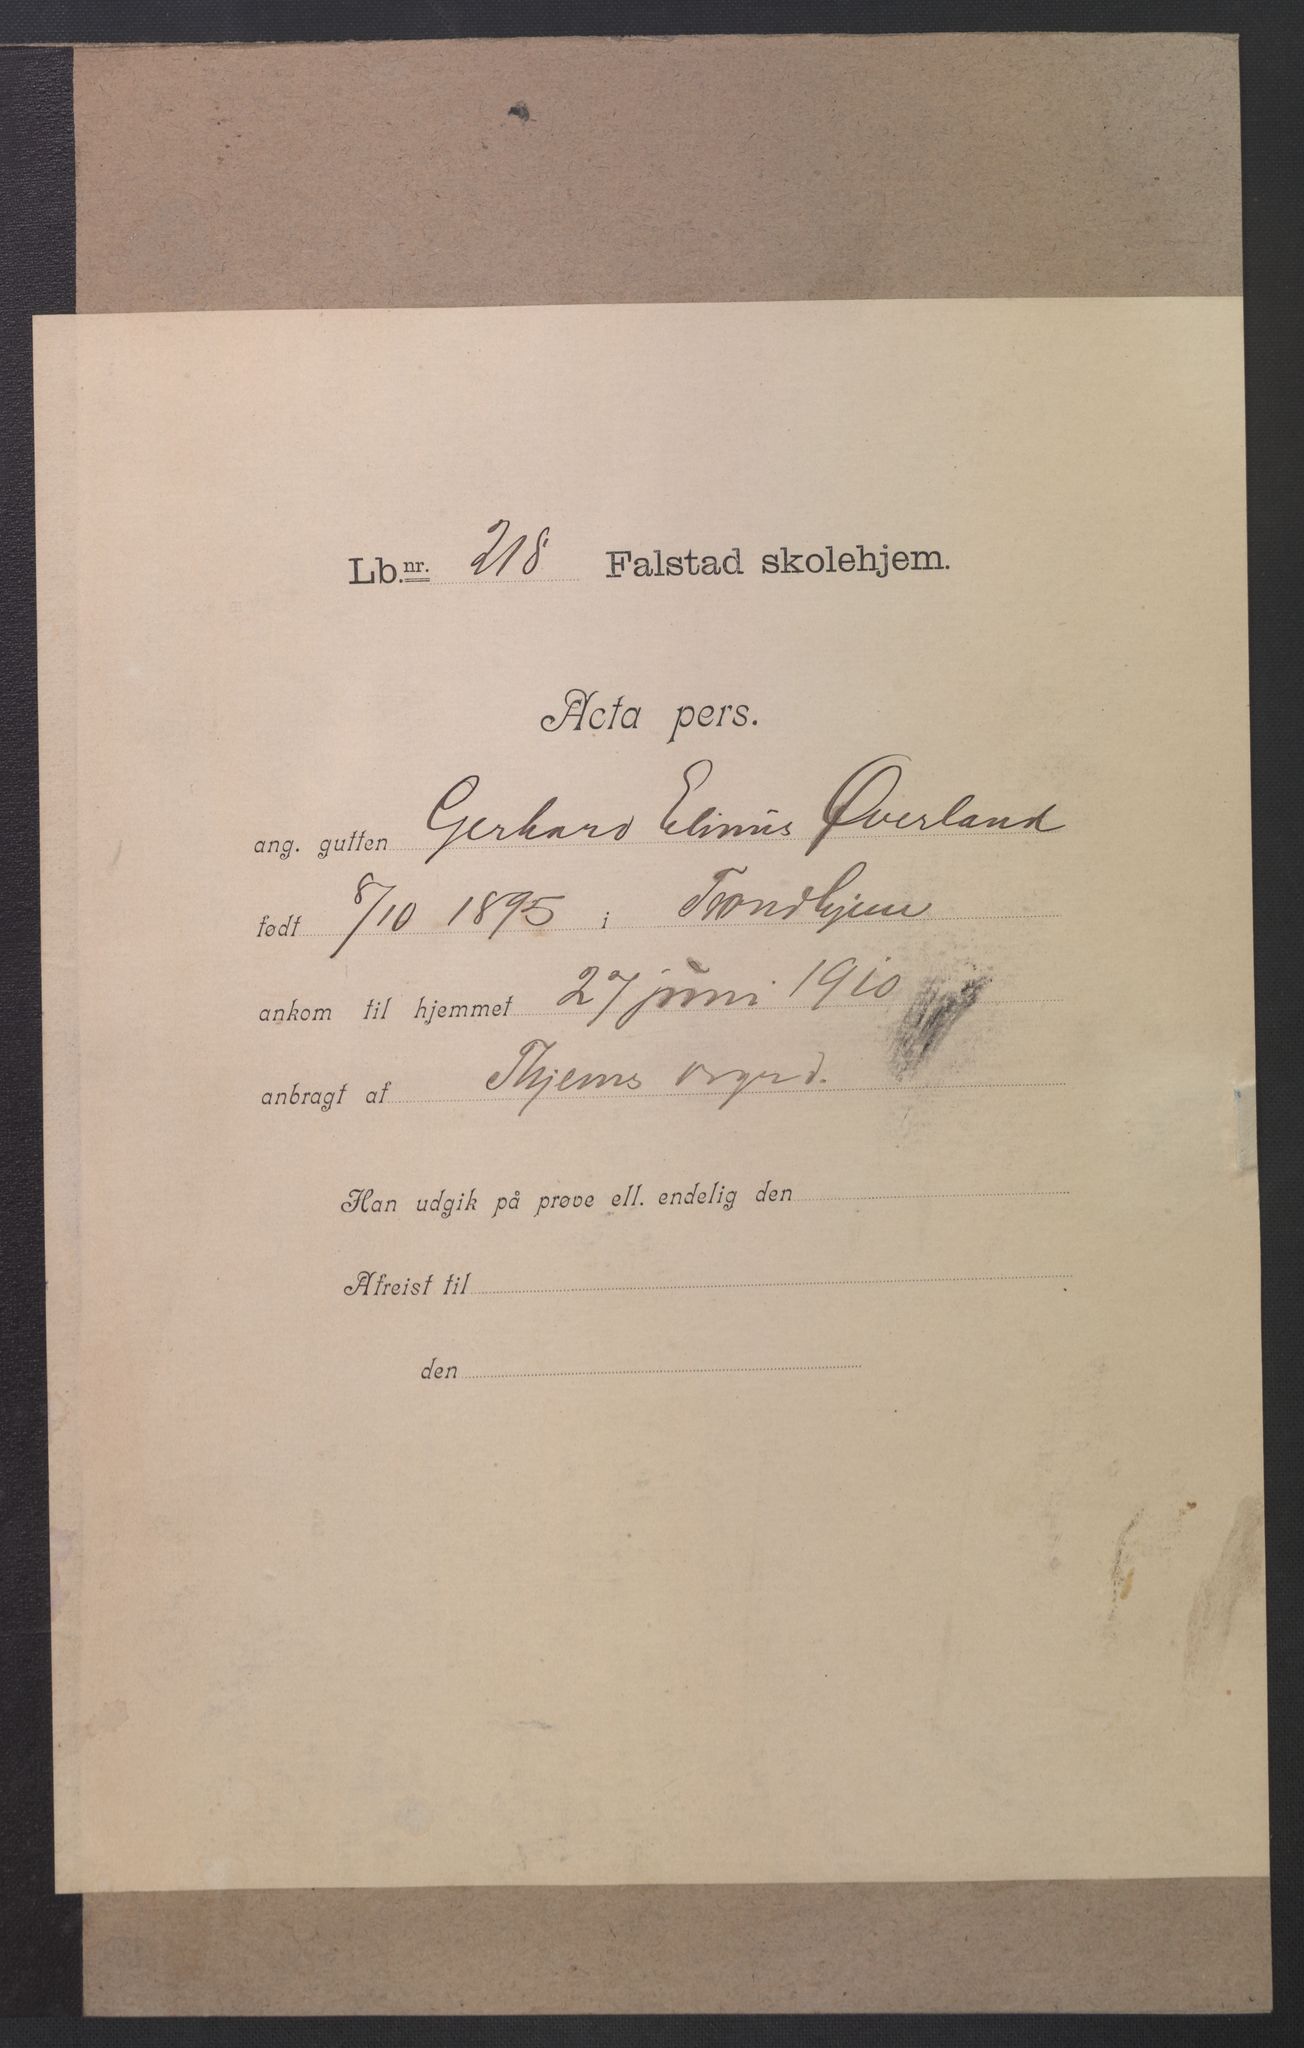 Lb.nr. 218 Falstad skolehjem.
Acta pers.
ang. gutten Gerhard Elinus Øverland
født 8/10 1895 i Trondhjem
ankom til hjemmet 27 juni 1910
anbragt af Thjems vrgrd.
Han udgik på prøve ell. endelig den
Afreist til
den